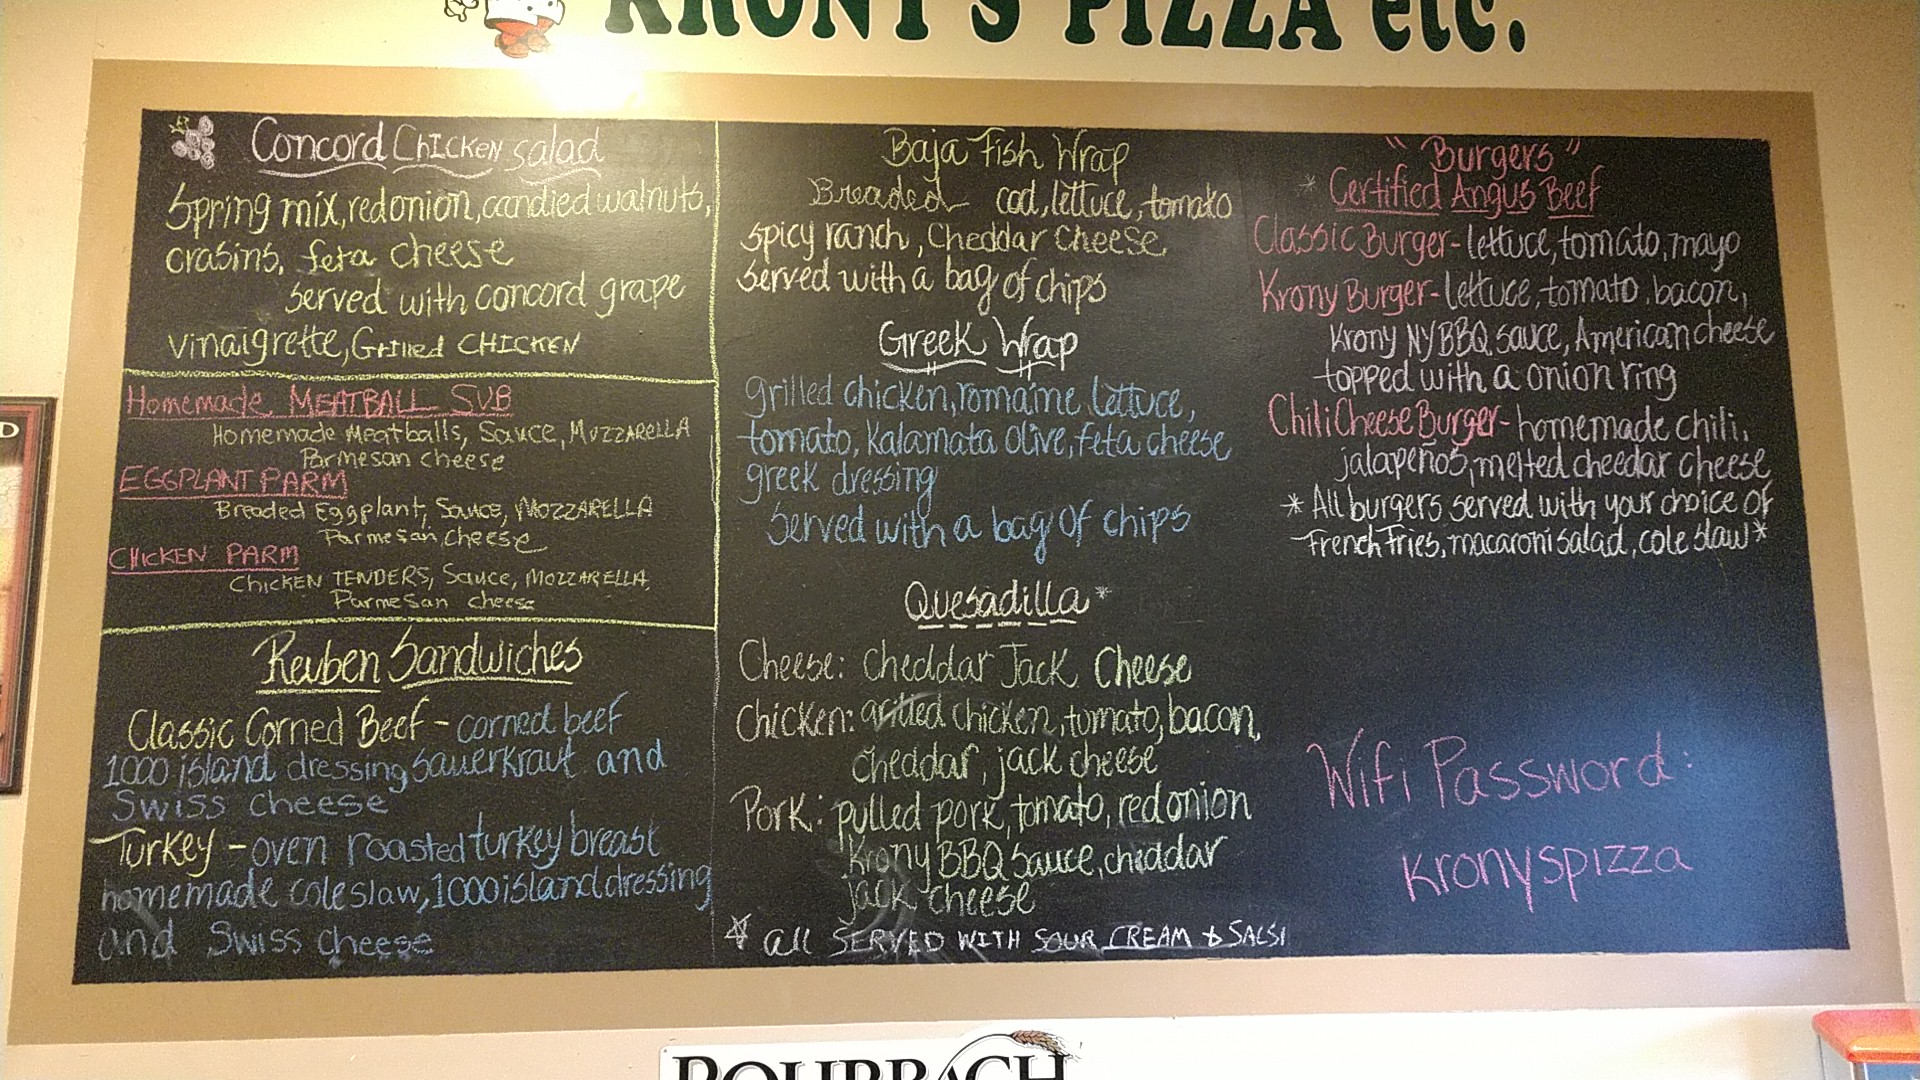 KRONY'S PIZZA etc.
Concord Chicken salad
Spring mix, red onion, candied walnuts,
crasins, feta cheese
served with concord grape
vinaigrette, Grilled CHICKEN
Homemade MEATBALL SUB
Homemade Meatballs, Sauce, MOZZARELLA
Parmesan cheese
EGGPLANT PARM
Breaded Eggplant, Sauce, MOZZARELLA
Parmesan, cheese
CHICKEN PARM
CHICKEN TENDERS, Sauce, MOZZARELLA,
Parmesan cheese
Reuben Sandwiches
Classic Corned Beef - corned beef
1000 island dressing sauerkraut and
Swiss cheese
Turkey - oven roasted turkey breast
homemade coleslaw, 1000 island dressing
and Swiss cheese
Baja Fish Wrap
Breaded cod, lettuce, tomato
spicy ranch, cheddar cheese
served with a bag of chips
Greek Wrap
grilled chicken, romaine lettuce,
tomato, Kalamata Olive, feta cheese
greek dressing
Served with a bag of chips
Quesadilla*
Cheese: cheddar Jack Cheese
Chicken: grilled chicken, tomato, bacon,
cheddar, jack cheese
Pork: pulled pork, tomato, red onion
Krony BBQ Sauce, cheddar
jack cheese
* all SERVED WITH SOUR CREAM & SALSA
"Burgers"
* Certified Angus Beef
Classic Burger - lettuce, tomato, mayo
Krony Burger - lettuce, tomato, bacon,
Krony NY BBQ sauce, American cheese
topped with a onion ring
Chili Cheese Burger - homemade chili,
jalapeños, melted cheedar cheese
* All burgers served with your choice of
French fries, macaroni salad, cole slaw *
Wifi Password:
kronyspizza
D
ROHRBACH